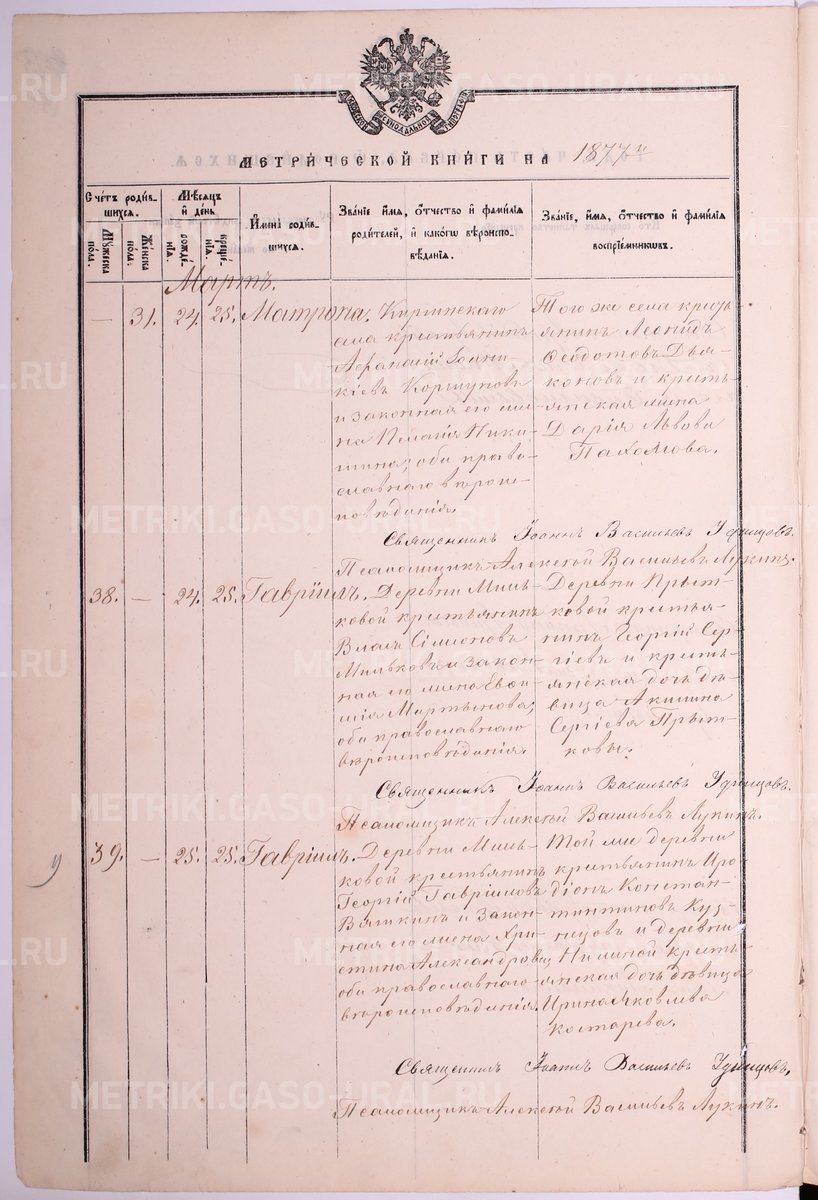 МЕТРИЧЕСКОЙ КНИГИ НА 1877 г
Счетъ родив-
шихся.
Мужеска
пола.
Женска
пола.
Мѣсяцъ
и день
рожде-
нія.
креще-
нія.
Имена родив-
шихся.
Званіе имя, отчество и фамилія
родителей, и какого вѣроиспо-
вѣданія.
Званіе, имя, отчество и фамилія
воспріемниковъ.
Мартъ.
— 31. 24. 25. Матрона.
села крестьянинъ
Афанасій Іоани-
кіевъ Коршуновъ
и законная его же-
на Пелагія Ники-
тина; оба право-
славнаго вѣроис-
повѣданія.
Того же села кресть-
янинъ Леонидъ
Ѳеодотовъ Дья-
коновъ и кресть-
янская жена
Дарія Львова
Пахомова.
Священникъ Іоаннъ Васильевъ Удинцовъ.
Псаломщикъ Алексѣй Васильевъ Лукинъ.
38. — 24. 25. Гавріилъ.
Деревни Миль-
ковой крестьянинъ
Власъ Сімеоновъ
Мильковъ и закон-
ная его жена Евѳи-
мія Мартынова;
оба православнаго
вѣроисповѣданія.
Деревни Прыт-
ковой крестья-
нинъ Георгій Сер-
гіевъ и кресть-
янская дочь дѣ-
вица Акилина
Сергіева Прыт-
ковы.
Священникъ Іоаннъ Васильевъ Удинцовъ.
Псаломщикъ Алексѣй Васильевъ Лукинъ.
39. — 25. 25. Гавріилъ.
Деревни Миль-
ковой крестьянинъ
Георгій Гавріиловъ
Вяткинъ и закон-
ная его жена Хри-
стина Александрова;
оба православнаго
вѣроисповѣданія.
Той же деревни
крестьянинъ Иро-
діонъ Констан-
тиновъ Куз-
нецовъ и деревни
кресть-
янская дочь дѣвица
Ирина Яковлева
Костарева.
Священникъ Іоаннъ Васильевъ Удинцовъ.
Псаломщикъ Алексѣй Васильевъ Лукинъ.
METRIKI.GASO-URAL.RU